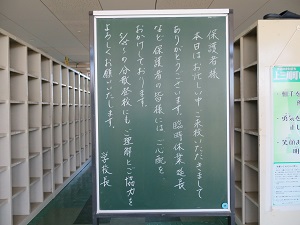 保護者様
本日はお忙しい中ご来校いただきまして
ありがとうございます。臨時休業延長
など保護者の皆様にはご心配を
おかけしております。
5/8〜の分散登校にもご理解とご協力を
よろしくお願いいたします。
学校長